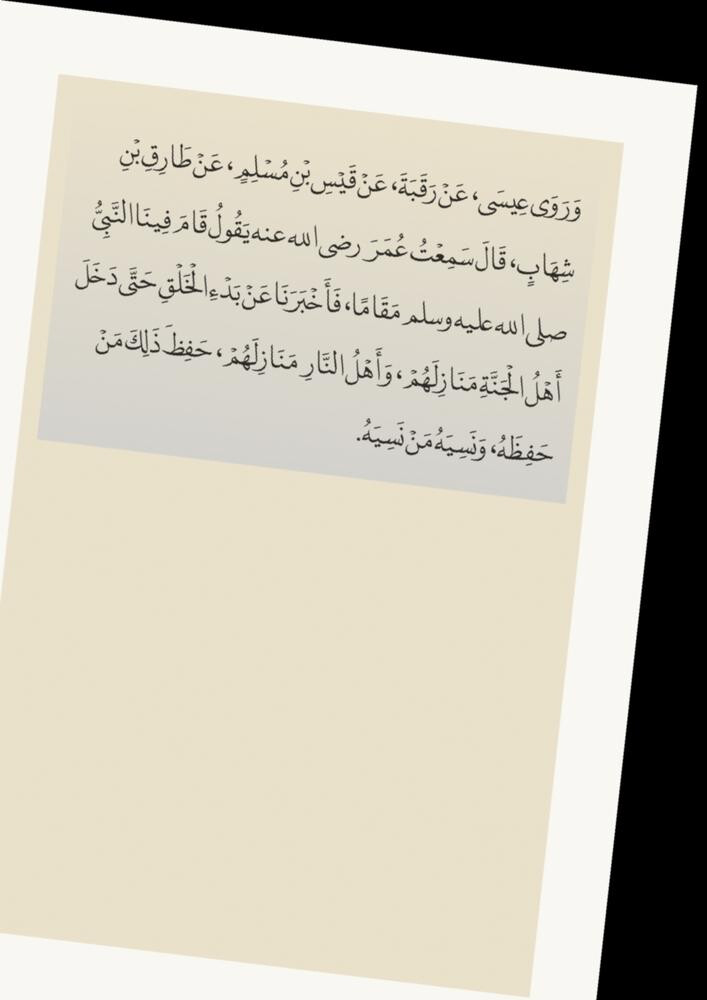 وَرَوَى عِيسَى، عَنْ رَقَبَةَ، عَنْ قَيْسِ بْنِ مُسْلِمٍ، عَنْ طَارِقِ بْنِ
شِهَابٍ، قَالَ سَمِعْتُ عُمَرَ رضى الله عنه يَقُولُ قَامَ فِينَا النَّبِيُّ
صلى الله عليه وسلم مَقَامًا، فَأَخْبَرَنَا عَنْ بَدْءِ الْخَلْقِ حَتَّى دَخَلَ
أَهْلُ الْجَنَّةِ مَنَازِلَهُمْ، وَأَهْلُ النَّارِ مَنَازِلَهُمْ، حَفِظَ ذَلِكَ مَنْ
حَفِظَهُ، وَنَسِيَهُ مَنْ نَسِيَهُ.